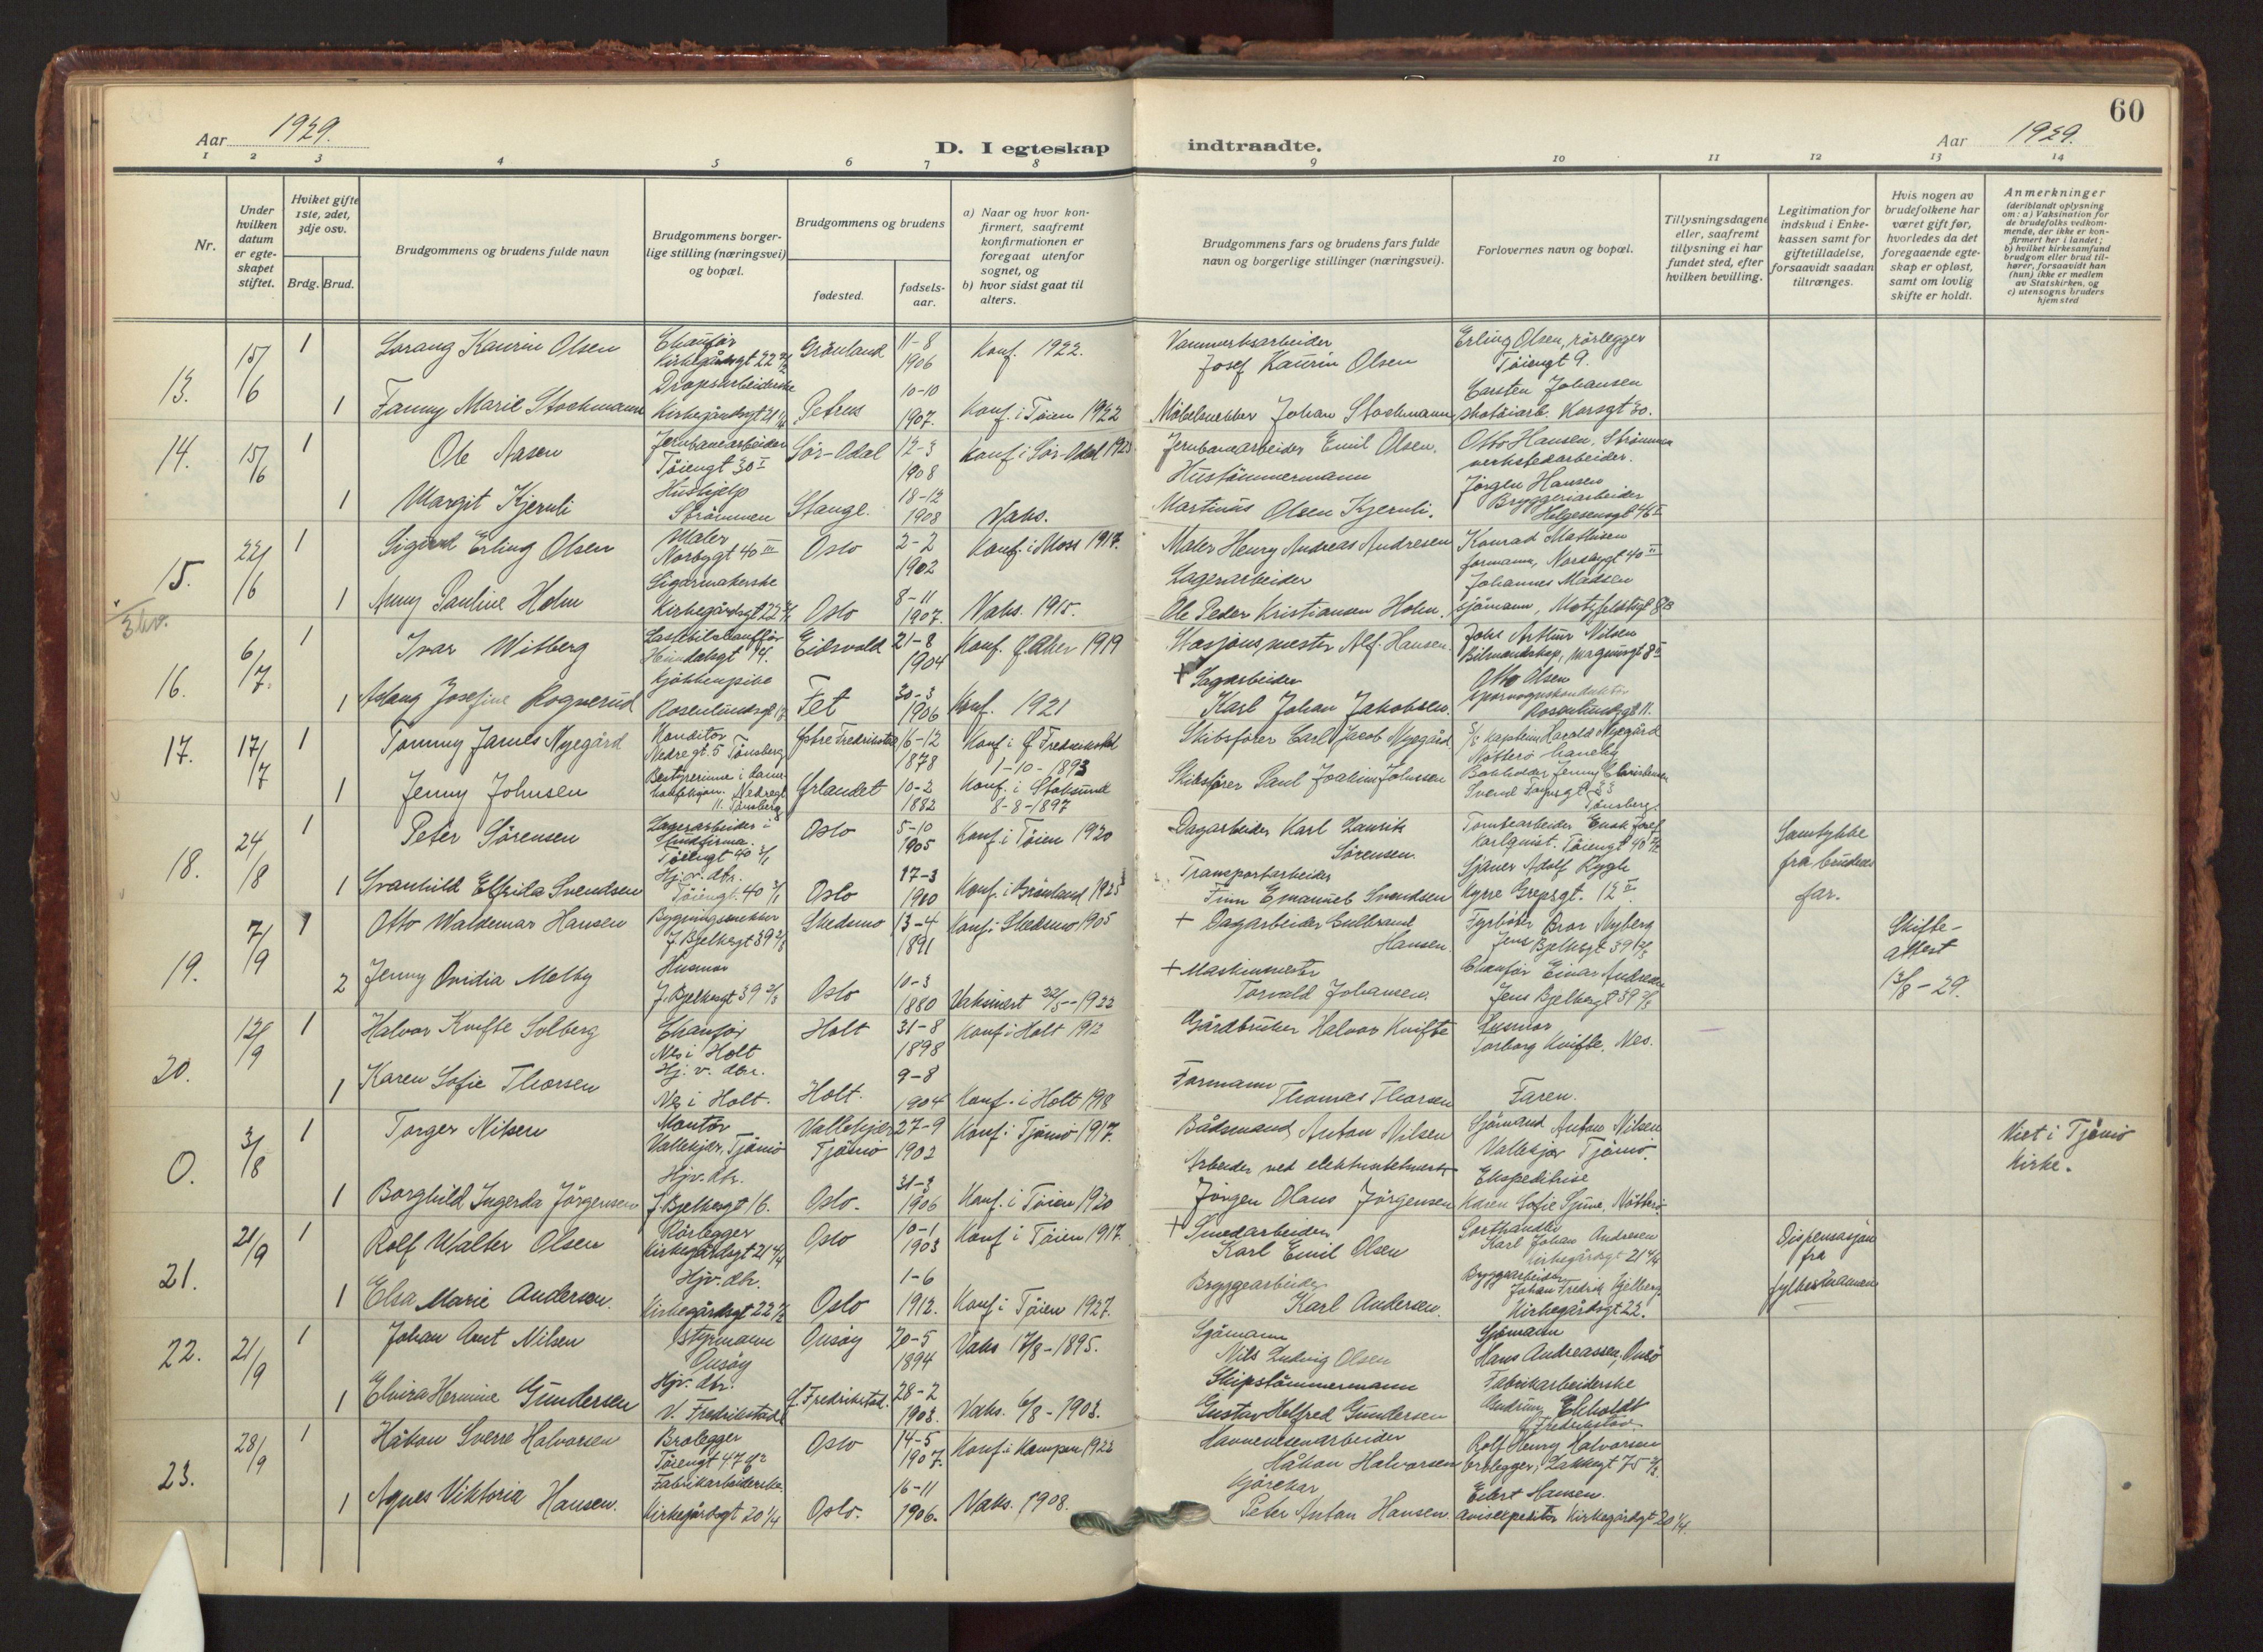 60
Aar 1929.
D. I egteskap indtraadte.
Aar 1929.
1 2 3 4 5 6 7 8 9 10 11 12 13 14
Nr.
Under hvilken datum er egteskapet stiftet.
Hviket gifte 1ste, 2det, 3dje osv.
Brdg. Brud.
Brudgommens og brudens fulde navn
Brudgommens borgerlige stilling (næringsvei) og bopæl.
Brudgommens og brudens
fødested.
fødselsaar.
a) Naar og hvor konfirmert, saafremt konfirmationen er foregaat utenfor sognet, og
b) hvor sidst gaat til alters.
Brudgommens fars og brudens fars fulde navn og borgerlige stillinger (næringsvei).
Forlovernes navn og bopæl.
Tillysningsdagene eller, saafremt tillysning ei har fundet sted, efter hvilken bevilling.
Legitimation for indskud i Enkekassen samt for giftetilladelse, forsaavidt saadan tiltrænges.
Hvis nogen av brudefolkene har været gift før, hvorledes da det foregaaende egteskap er opløst, samt om lovlig skifte er holdt.
Anmerkninger (deriblandt oplysning om: a) Vaksination for de brudefolks vedkommende, der ikke er konfirmert her i landet; b) hvilket kirkesamfund brudgom eller brud tilhører, forsaavidt han (hun) ikke er medlem av Statskirken, og c) utensogns bruders hjemsted
13. 15/6 1 Lorang Kaurin Olsen Chauffør Kirkegårdsgt 22 Grönland 11-8 1906 Konf. 1922. Vannverksarbeider Josef Kaurin Olsen Erling Olsen, rörlegger Töiengt 9.
1 Fanny Marie Stockmann Dropsarbeiderske Kirkegårdsgt 21 Petrus 10-10 1907. Konf. i Töien 1922 Möbelsnekker Johan Stockmann Carsten Johansen skotöiarb. Korsgt 30.
14. 15/6 1 Ole Aasen Jernbanearbeider Töiengt 30 I Sör-Odal 12-3 1908 Konf i Sör-Odal 1923 Jernbanearbeider Emil Olsen. Otto Hansen, Strömmen verkstedarbeider.
1 Margit Kjernli Hushjelp Strömmen Stange. 18-12 1908 Vaks. Hustömmermann Martinus Olsen Kjernli. Jörgen Hansen Bryggeriarbeider Helgesensgt 46 II
15. 22/6 1 Sigurd Erling Olsen Maler Norbygt 40 III Oslo 2-2 1902 Konf. i Moss 1917. Maler Henry Andreas Andresen Konrad Mathisen formann, Norbygt 40 II
1 Anny Pauline Holm Sigarmakerske Kirkegårdsgt 22 Oslo 8-11 1907. Vaks. 1915. Lagerarbeider Ole Peder Kristiansen Holm. Johannes Madsen sjömann, Motzfeldtsgt 8B
16. 6/7. 1 Ivar Witberg Lastebilchaufför Heimdalsgt Eidsvold 21-8 1904 Konf. Ø. Aker 1919 Stasjonsmester Alf. Hansen. Johs Arthur Nilsen Bilmannskap, Magnusgt 8 II
1 Aslaug Josefine Rognerud Kjökkenpike Rosenlundsgt Fet 30-3 1906 Konf. 1921 + Sagarbeider Karl Johan Jakobsen. Otto Olsen sporvognskonduktör Rosenlundsgt 11.
17. 17/7 1 Tommy James Nyegård Konditor Nedregt. 5 Tönsberg Østre Fredrikstad 16-12 1878 Konf i Ø Fredrikstad 1-10-1893 Skibsförer Carl Jacob Nyegård Kapstein Harald Nyegård Nötterö
1 Jenny Johnsen Bestyrerinne i Damekonfeksjon. Nedregt 11. Tönsberg Ørlandet 10-2 1882 Konf. i Stoksund 8-8-1897 Skibsfører Paul Joakim Johnsen Bokholder Jenny Christensen Svend Foynsgt 23 Tönsberg.
18. 24/8 1 Peter Sörensen Lagerarbeider i Töiengt 40 Oslo 5-10 1905 Konf i Töien 1920 Dagarbeider Karl Laurits Sörensen. Tomtearbeider Enok Josef Karlquist. Töiengt 40 Samtykke fra brudens far.
1 Svanhild Elfrida Svendsen Hj. v. dbr. Töiengt. 40 Oslo 27-3 1910 Konf. i Grönland 1925 Transportarbeider Finn Emanuel Svendsen Sjauer Adolf Rygh Kyrre Grepsgt. 12 II.
19. 7/9 1 Otto Waldemar Hansen Bygningssnekker J. Bjelkesgt 39 2/3 Skedsmo 13-4 1891 Konf i Skedsmo 1905 + Dagarbeider Gulbrand Hansen Fyrböter Bror Nyberg Jens Bjelkesgt 39 2/3 Skifteattest 13/8-29.
2 Jenny Ovidia Melby Husmor J. Bjelkesgt 39 2/3 Oslo 10-3 1880 Vaksinert 22/5-1922 + Maskinmester Torvald Johansen. Chauför Einar Andresen Jens Bjelkesgt 39 2/3
20. 12/9 1 Halvor Knifte Solberg Chauför Nes i Holt Holt 31-8 1898 Konf i Holt 1912 Gårdbruker Halvor Knifte Husmor Torborg Knifte, Nes.
1 Karen Sofie Thorsen Hj. v. dbr. Nes i Holt. Holt. 9-8 1904 Konf. i Holt 1918 Formann Thomas Thorsen Faren.
0. 3/8 1 Torger Nilsen Montör Vallekjær, Tjömö Vallekjær Tjömö 27-9 1902 Konf. i Tjömö 1917. Båtsmand Anton Nilsen Sjömand Anton Nilsen Vallekjær Tjömö. Viet i Tjömö Kirke.
1 Borghild Ingerda Jörgensen Hjv. dbr. J. Bjelkesgt 16. Oslo. 31-3 1906 Konf. i Töien 1920 Arbeider ved elektrisitetsverk Jörgen Olaus Jörgensen Ekspeditrise Karen Sofie Nötterö.
21. 21/9 1 Rolf Walter Olsen Rörlegger Kirkegårdsgt 21 4/4 Oslo 10-1 1903 Konf i Töien 1917. + Smedarbeider Karl Emil Olsen Karl Johan Andresen Kirkegårdsgt 21 4/4 Dispensasjon fra fylkesmannen
1 Elsa Marie Andersen. Hjv. dbr. Kirkegårdsgt 22 Oslo 1-6 1912. Konf i Töien 1927. Bryggearbeider Karl Andersen. Bryggearbeider Johan Fredrik Kjelberg Kirkegårdsgt 22.
22. 21/9 1 Johan Arnt Nilsen Styrmann Onsöy Onsöy 20-5 1894 Vaks 17/8-1895. Sjömann Nils Ludvig Olsen Sjömann Hans Andreassen, Onsö
1 Elvira Hermine Gundersen Hjv. dbr. V. Fredrikstad Fredrikstad. 28-2 1903. Vaks. 6/8-1903. Skipstömmermann Gustav Helfred Gundersen Fabrikarbeiderske Gudrun Ekholdt Fredrikstad
23. 28/9 1 Håkon Sverre Halvorsen Brolegger Töiengt 47 Oslo 14-5 1907. Konf. i Kampen 1922 Havnevesenarbeider Håkon Halvorsen Rolf Henry Halvorsen brolegger, Lakkegt 75
1 Agnes Viktoria Hansen. Fabrikarbeiderske. Kirkegårdsgt 20 1/4 Oslo. 16-11 1906. Vaks. 1908. Kjörekar Peter Anton Hansen. Eilert Hansen. avisexpeditör Kirkegårdsgt 20 1/4.